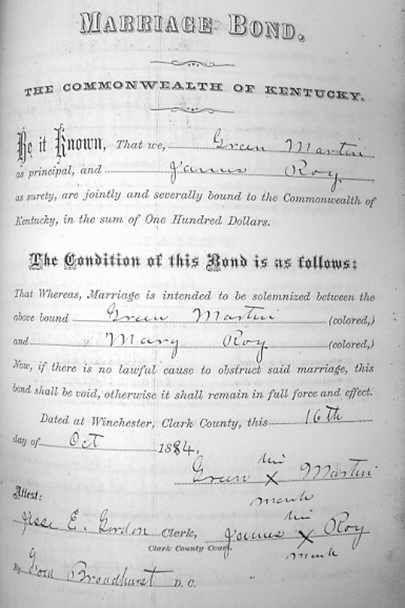 MARRIAGE BOND.
THE COMMONWEALTH OF KENTUCKY.
Be it Known, That we, Green Martin
as principal, and James Roy
as surety, are jointly and severally bound to the Commonwealth of
Kentucky, in the sum of One Hundred Dollars.
The Condition of this Bond is as follows:
That Whereas, Marriage is intended to be solemnized between the
above bound Green Martin (colored,)
and Mary Roy (colored,)
Now, if there is no lawful cause to obstruct said marriage, this
bond shall be void, otherwise it shall remain in full force and effect.
Dated at Winchester, Clark County, this 16th
day of Oct 1884.
his
Green X Martin
mark
Attest:
his
Jesse E. Gordon Clerk, James X Roy
Clark County Court.
mark
By Broadhurst D. C.